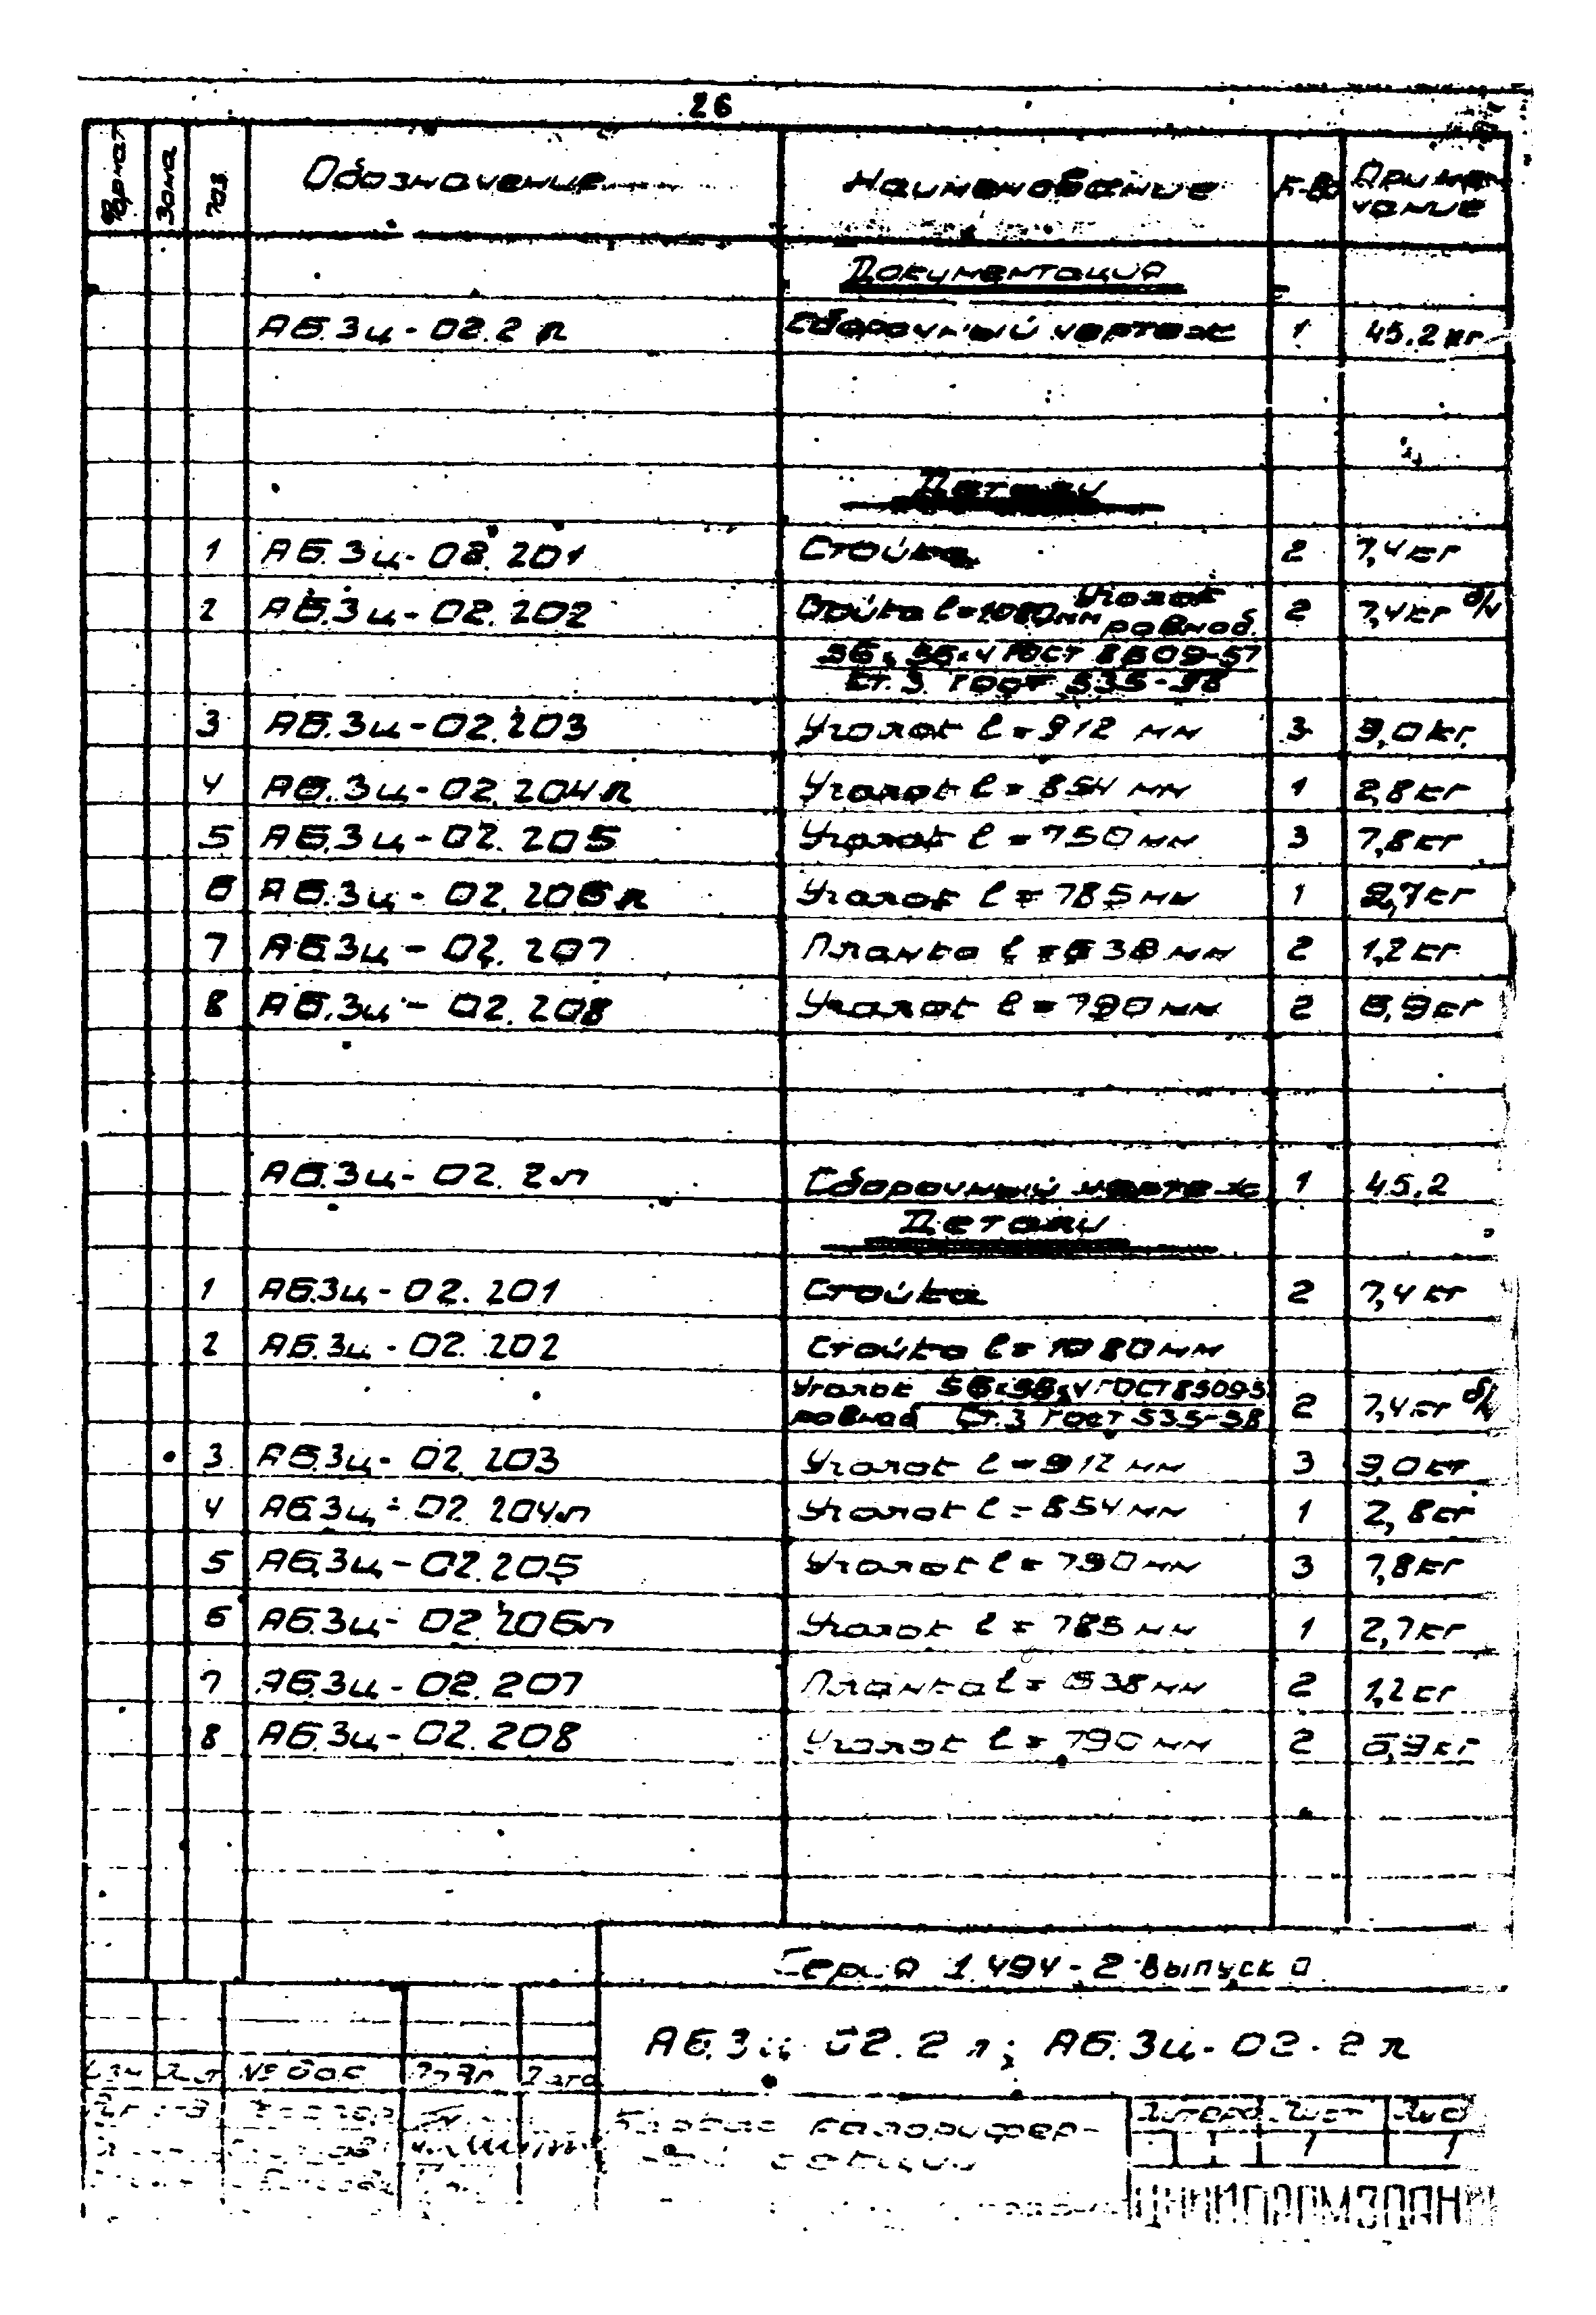 26
Формат Зона Поз. Обозначение Наименование К-во Примечание
Документация
А6.3ц-02.2п Сборочный чертеж 1 45.2 кг
Детали
1 А6.3ц-02.201 Стойка 2 7,4кг
2 А6.3ц-02.202 Стойка ℓ=1080мм Уголок равноб. 2 7,4кг б/ч
56x56x4 ГОСТ 8509-57
Ст.3 ГОСТ 535-58
3 А6.3ц-02.203 Уголок ℓ=912 мм 3 9,0кг
4 А6.3ц-02.204п Уголок ℓ=854 мм 1 2,8кг
5 А6.3ц-02.205 Уголок ℓ=790мм 3 7,8кг
6 А6.3ц-02.206п Уголок ℓ=785мм 1 2,7кг
7 А6.3ц-02.207 Планка ℓ=638мм 2 1,2кг
8 А6.3ц-02.208 Уголок ℓ=790мм 2 5,9кг
А6.3ц-02.2л Сборочный чертеж 1 45.2
Детали
1 А6.3ц-02.201 Стойка 2 7,4кг
2 А6.3ц-02.202 Стойка ℓ=1080мм
Уголок 56x56x4 ГОСТ 8509-5
равноб Ст.3 ГОСТ 535-58 2 7,4кг б/ч
3 А6.3ц-02.203 Уголок ℓ=912 мм 3 9,0кг
4 А6.3ц-02.204л Уголок ℓ=854мм 1 2,8кг
5 А6.3ц-02.205 Уголок ℓ=790мм 3 7,8кг
6 А6.3ц-02.206л Уголок ℓ=785мм 1 2,7кг
7 А6.3ц-02.207 Планка ℓ=638мм 2 1,2кг
8 А6.3ц-02.208 Уголок ℓ=790мм 2 5,9кг
Серия 1.494-2 выпуск 0
А6.3ц-02.2л; А6.3ц-02.2п
Изм Лист № док Подп Дата
калориферной секции
Литера Лист Лист
1 1
ЦНИИПРОМЗДАНИ